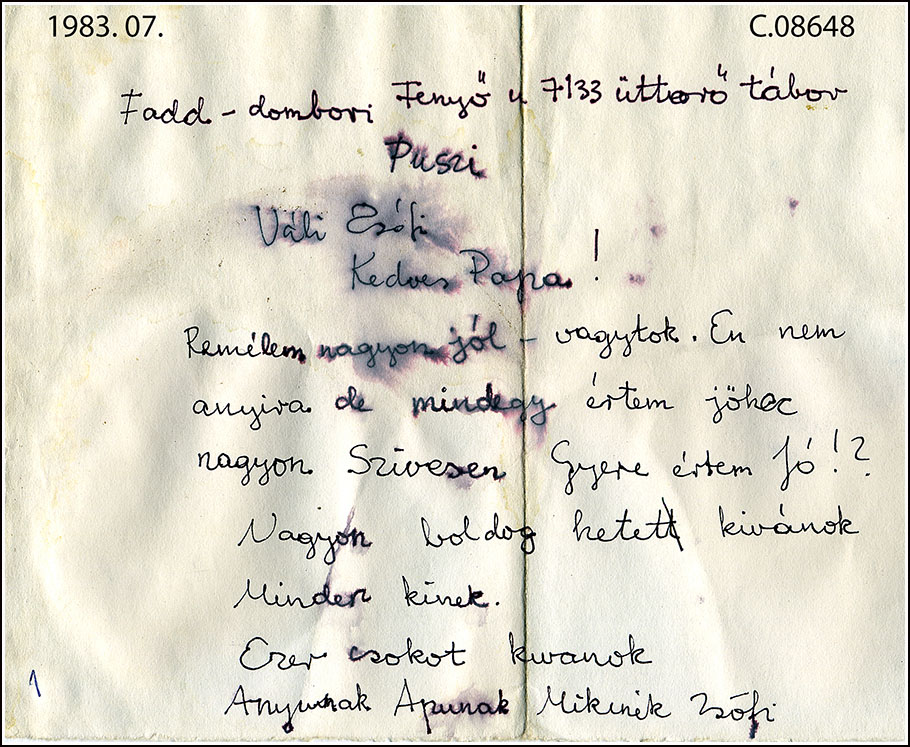 1983. 07. C.08648
Fadd - dombori Fenyő u 7133 úttörő tábor
Puszi
Váli Zsófi
Kedves Papa !
Remélem nagyon jól - vagytok. En nem
anyira de mindegy értem jöhec
nagyon Szivesen Gyere értem Jó!?
Nagyon boldog hetett kivánok
Minden kinek.
Ezer csokot kivanok
Anyunak Apunak Mikinek Zsófi
1